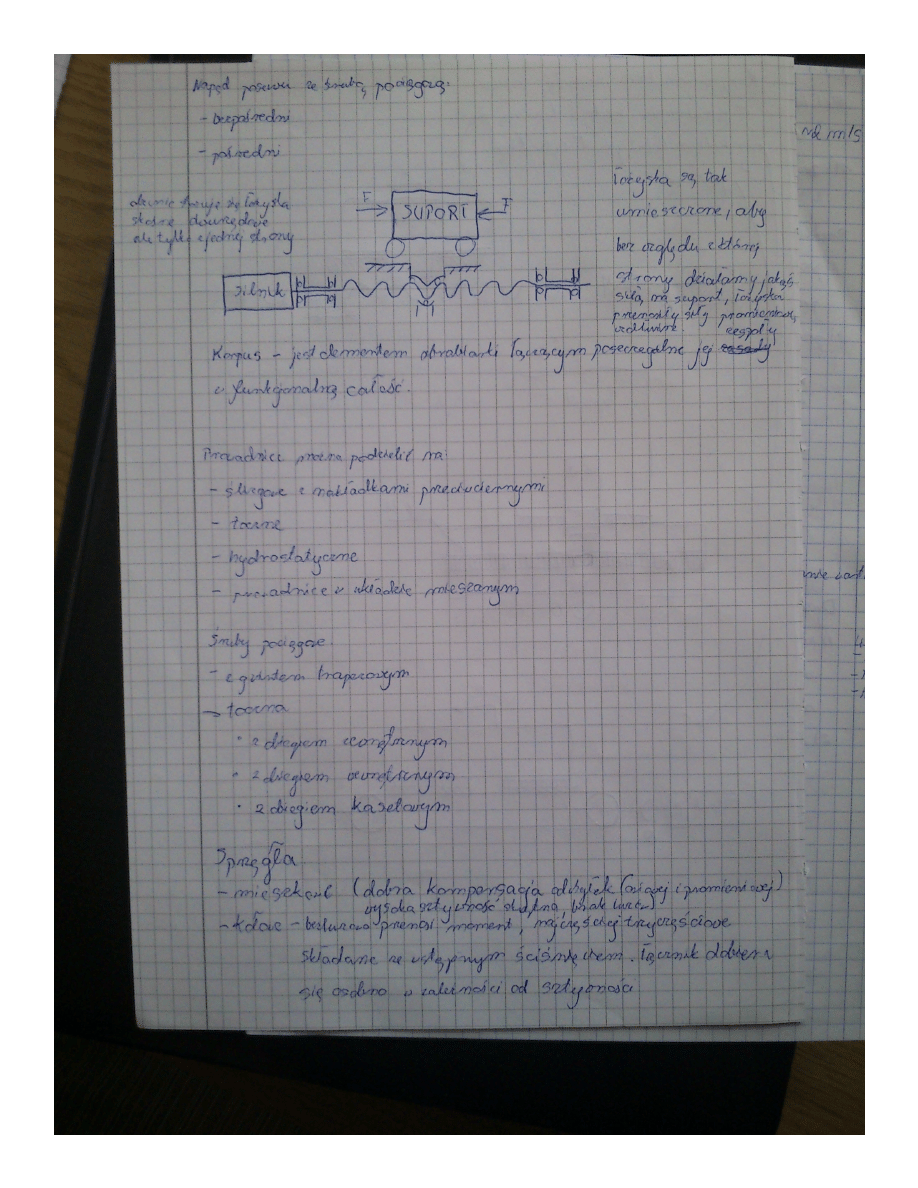 Napęd posuwu ze śrubą pociągową:
- bezpośredni
- pośredni
stosuje się łożyska
skośne dwurzędowe
ale tylko z jednej strony
F
SUPORT
F
silnik
Łożyska są tak
umieszczone, aby
bez względu z której
strony działamy jakąś
siłą na suport, łożyska
przenosiły siłę
zespoły
Korpus - jest elementem obrabiarki łączącym poszczególne jej zasady
w funkcjonalną całość.
Prowadnice można podzielić na:
- ślizgowe z nakładkami przeciwciernymi
- toczne
- hydrostatyczne
- prowadnice w układzie mieszanym
Śruby pociągowe.
- z gwintem trapezowym
- toczna
• z biegiem zewnętrznym
• z biegiem wewnętrznym
• z biegiem kasetowym
Sprzęgła
- mieszkowe (dobra kompensacja odchyłek (osiowej i promieniowej)
wysoka sztywność skrętna, brak luzów)
- kłowe - bezluzowo przenosi moment, najczęściej trzyczęściowe
składane ze wstępnym ściśnięciem. Łącznik dobiera
się osobno w zależności od sztywności
m/s